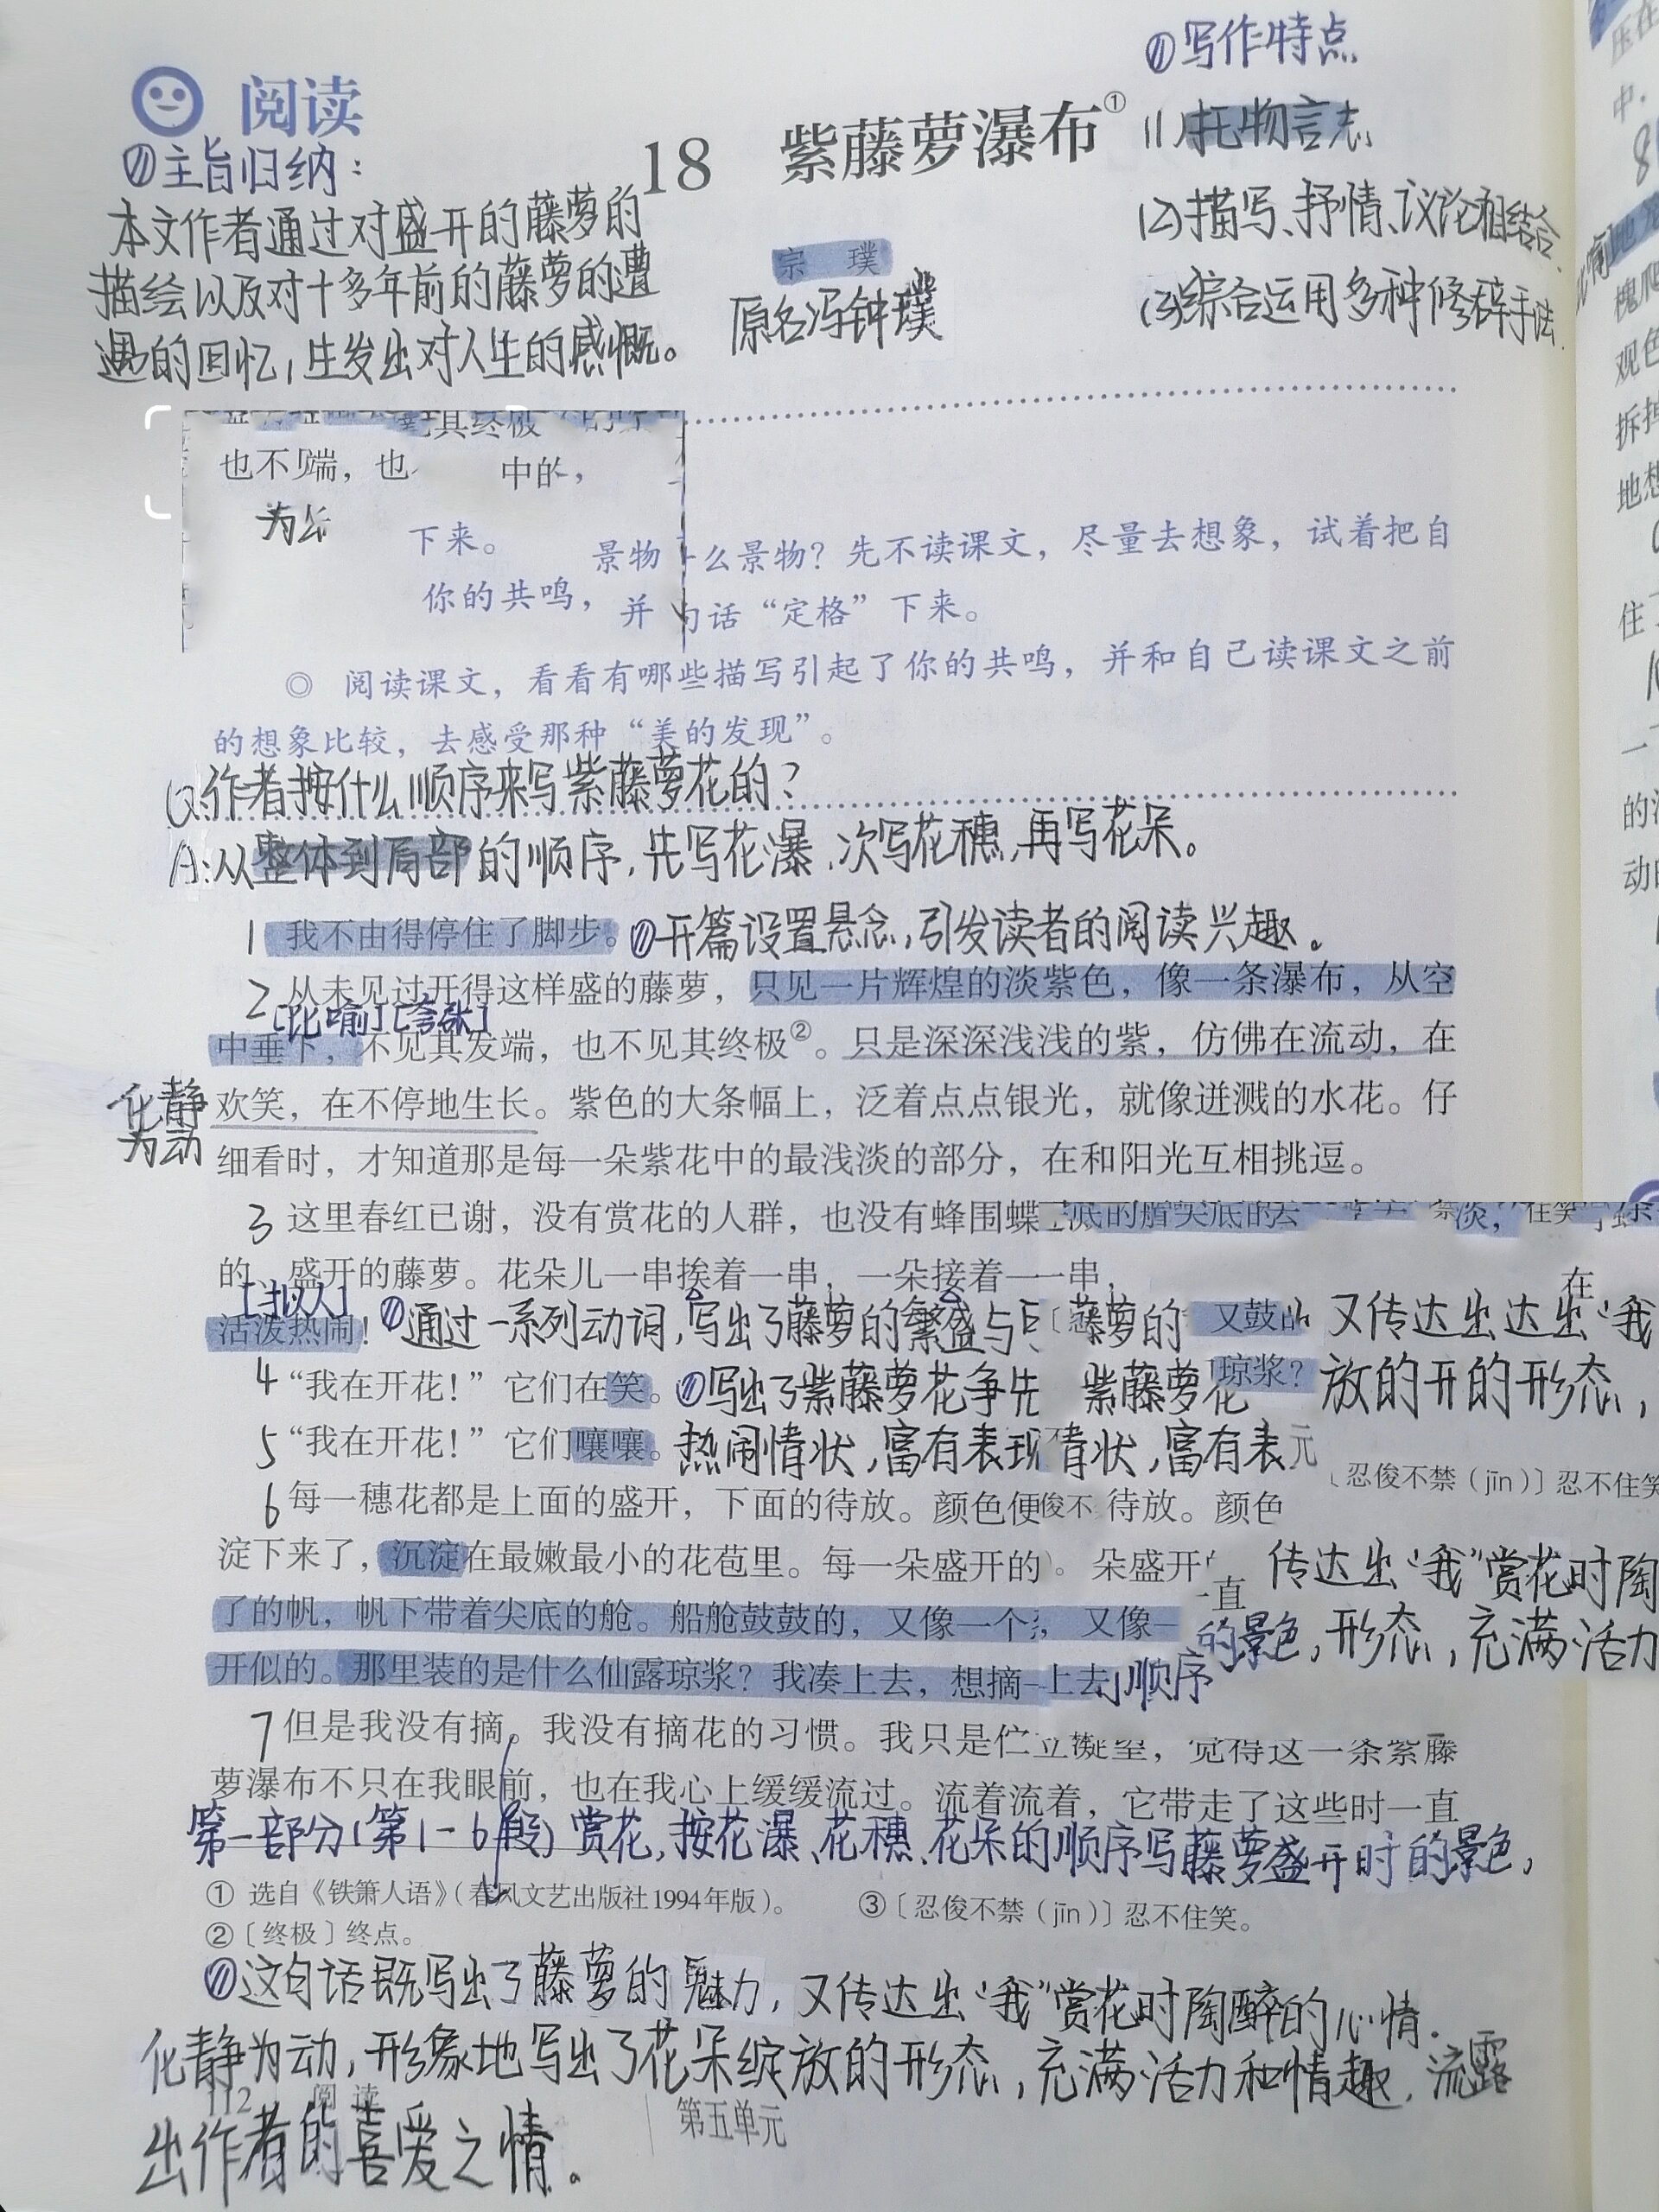 阅读
①写作特点
18 紫藤萝瀑布①
①主旨归纳：
(1)托物言志
本文作者通过对盛开的藤萝的
(2)描写、抒情、议论相结合
宗 璞
描绘以及对十多年前的藤萝的遭
原名冯钟璞
(3)综合运用多种修辞手法
遇的回忆，生发出对人生的感慨。
也不 端，也 中的，
下来。
景物 么景物？先不读课文，尽量去想象，试着把自
你的共鸣，并 句话“定格”下来。
◎ 阅读课文，看看有哪些描写引起了你的共鸣，并和自己读课文之前
的想象比较，去感受那种“美的发现”。
Q:作者按什么顺序来写紫藤萝花的？
A:从整体到局部的顺序，先写花瀑、次写花穗，再写花朵。
1 我不由得停住了脚步。 开篇设置悬念，引发读者的阅读兴趣。
2 从未见过开得这样盛的藤萝，只见一片辉煌的淡紫色，像一条瀑布，从空
[比喻][夸张]
中垂下，不见其发端，也不见其终极②。只是深深浅浅的紫，仿佛在流动，在
化静为动
欢笑，在不停地生长。紫色的大条幅上，泛着点点银光，就像迸溅的水花。仔
细看时，才知道那是每一朵紫花中的最浅淡的部分，在和阳光互相挑逗。
3 这里春红已谢，没有赏花的人群，也没有蜂围蝶
的、盛开的藤萝。花朵儿一串挨着一串，一朵接着一 一串，
[拟人]
活泼热闹！ 通过一系列动词，写出了藤萝的繁盛与 藤萝的 又鼓 又传达出达出“我
4 “我在开花！”它们在笑。 写出了紫藤萝花争先 紫藤萝花 琼浆？ 放的开的形态，
5 “我在开花！”它们嚷嚷。 热闹情状，富有表现 情状，富有表
〔忍俊不禁（jīn）〕忍不住笑
6 每一穗花都是上面的盛开，下面的待放。颜色便 俊不 待放。颜色
淀下来了，沉淀在最嫩最小的花苞里。每一朵盛开的 朵盛开 一直 传达出“我”赏花时陶
了的帆，帆下带着尖底的舱。船舱鼓鼓的，又像一个 又像一 的景色，形态，充满活力
开似的。那里装的是什么仙露琼浆？我凑上去，想摘 上去 顺序
7 但是我没有摘。我没有摘花的习惯。我只是伫立凝望，觉得这一条紫藤
萝瀑布不只在我眼前，也在我心上缓缓流过。流着流着，它带走了这些时一直
第一部分(第1-6段)赏花，按花瀑、花穗、花朵的顺序写藤萝盛开时的景色，
① 选自《铁箫人语》（春风文艺出版社1994年版）。 ③〔忍俊不禁（jīn）〕忍不住笑。
②〔终极〕终点。
这句话既写出了藤萝的魅力，又传达出“我”赏花时陶醉的心情.
化静为动，形象地写出了花朵绽放的形态，充满活力和情趣，流露
112 阅读
第五单元
出作者的喜爱之情。